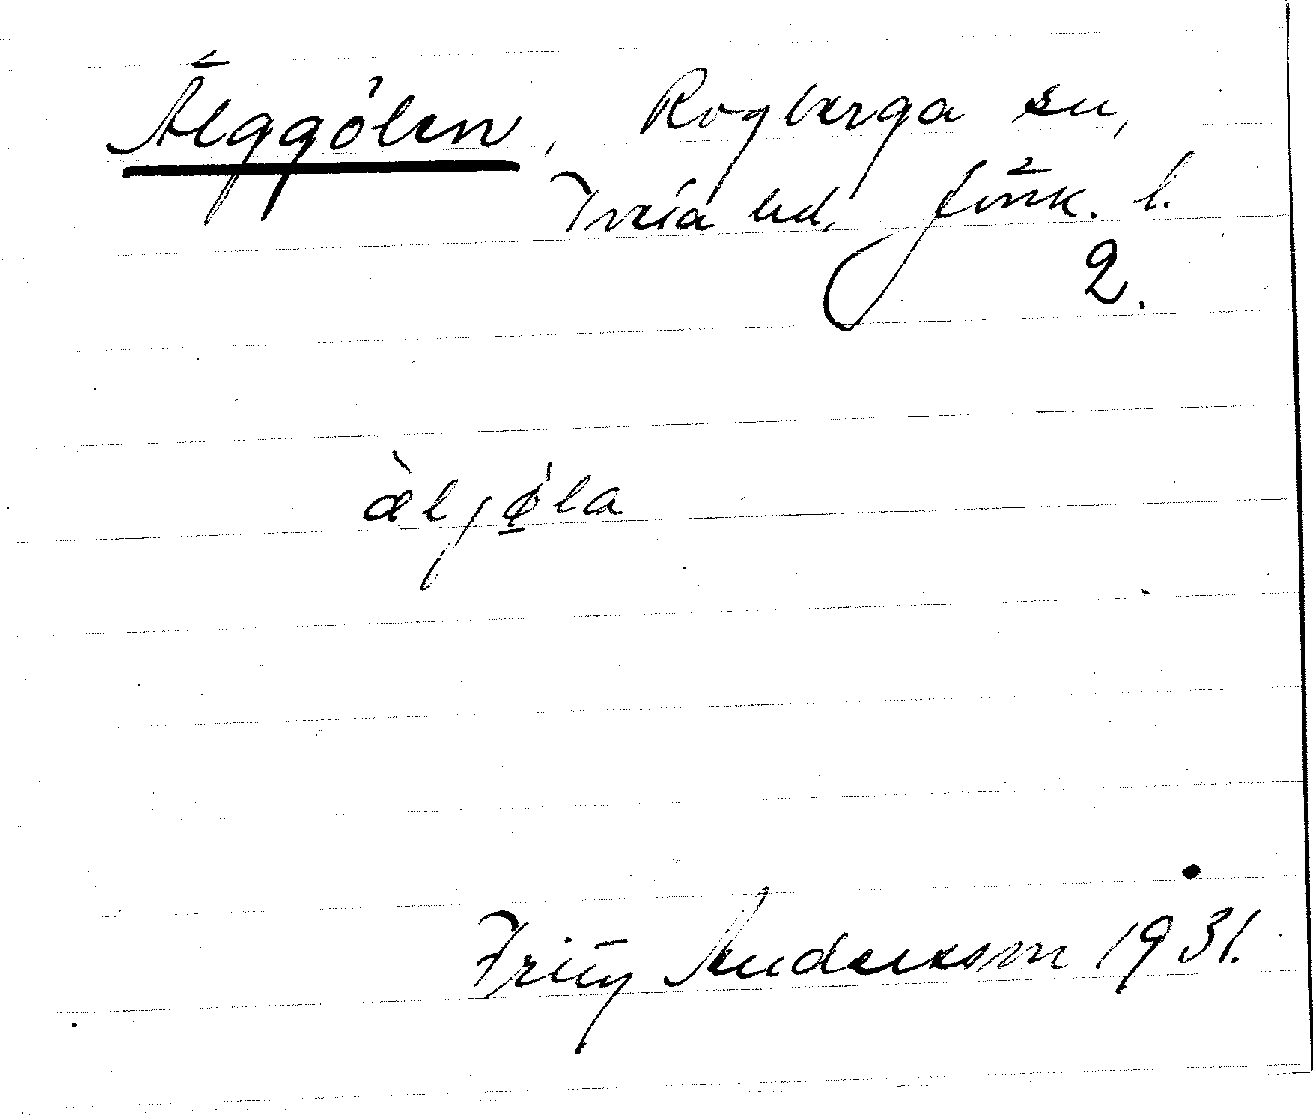 Älggölen, Rogberga sn,
Tveta hd, Jönk. l.
2.
æ̀ljø̀la
Fritz Andersson 1931.